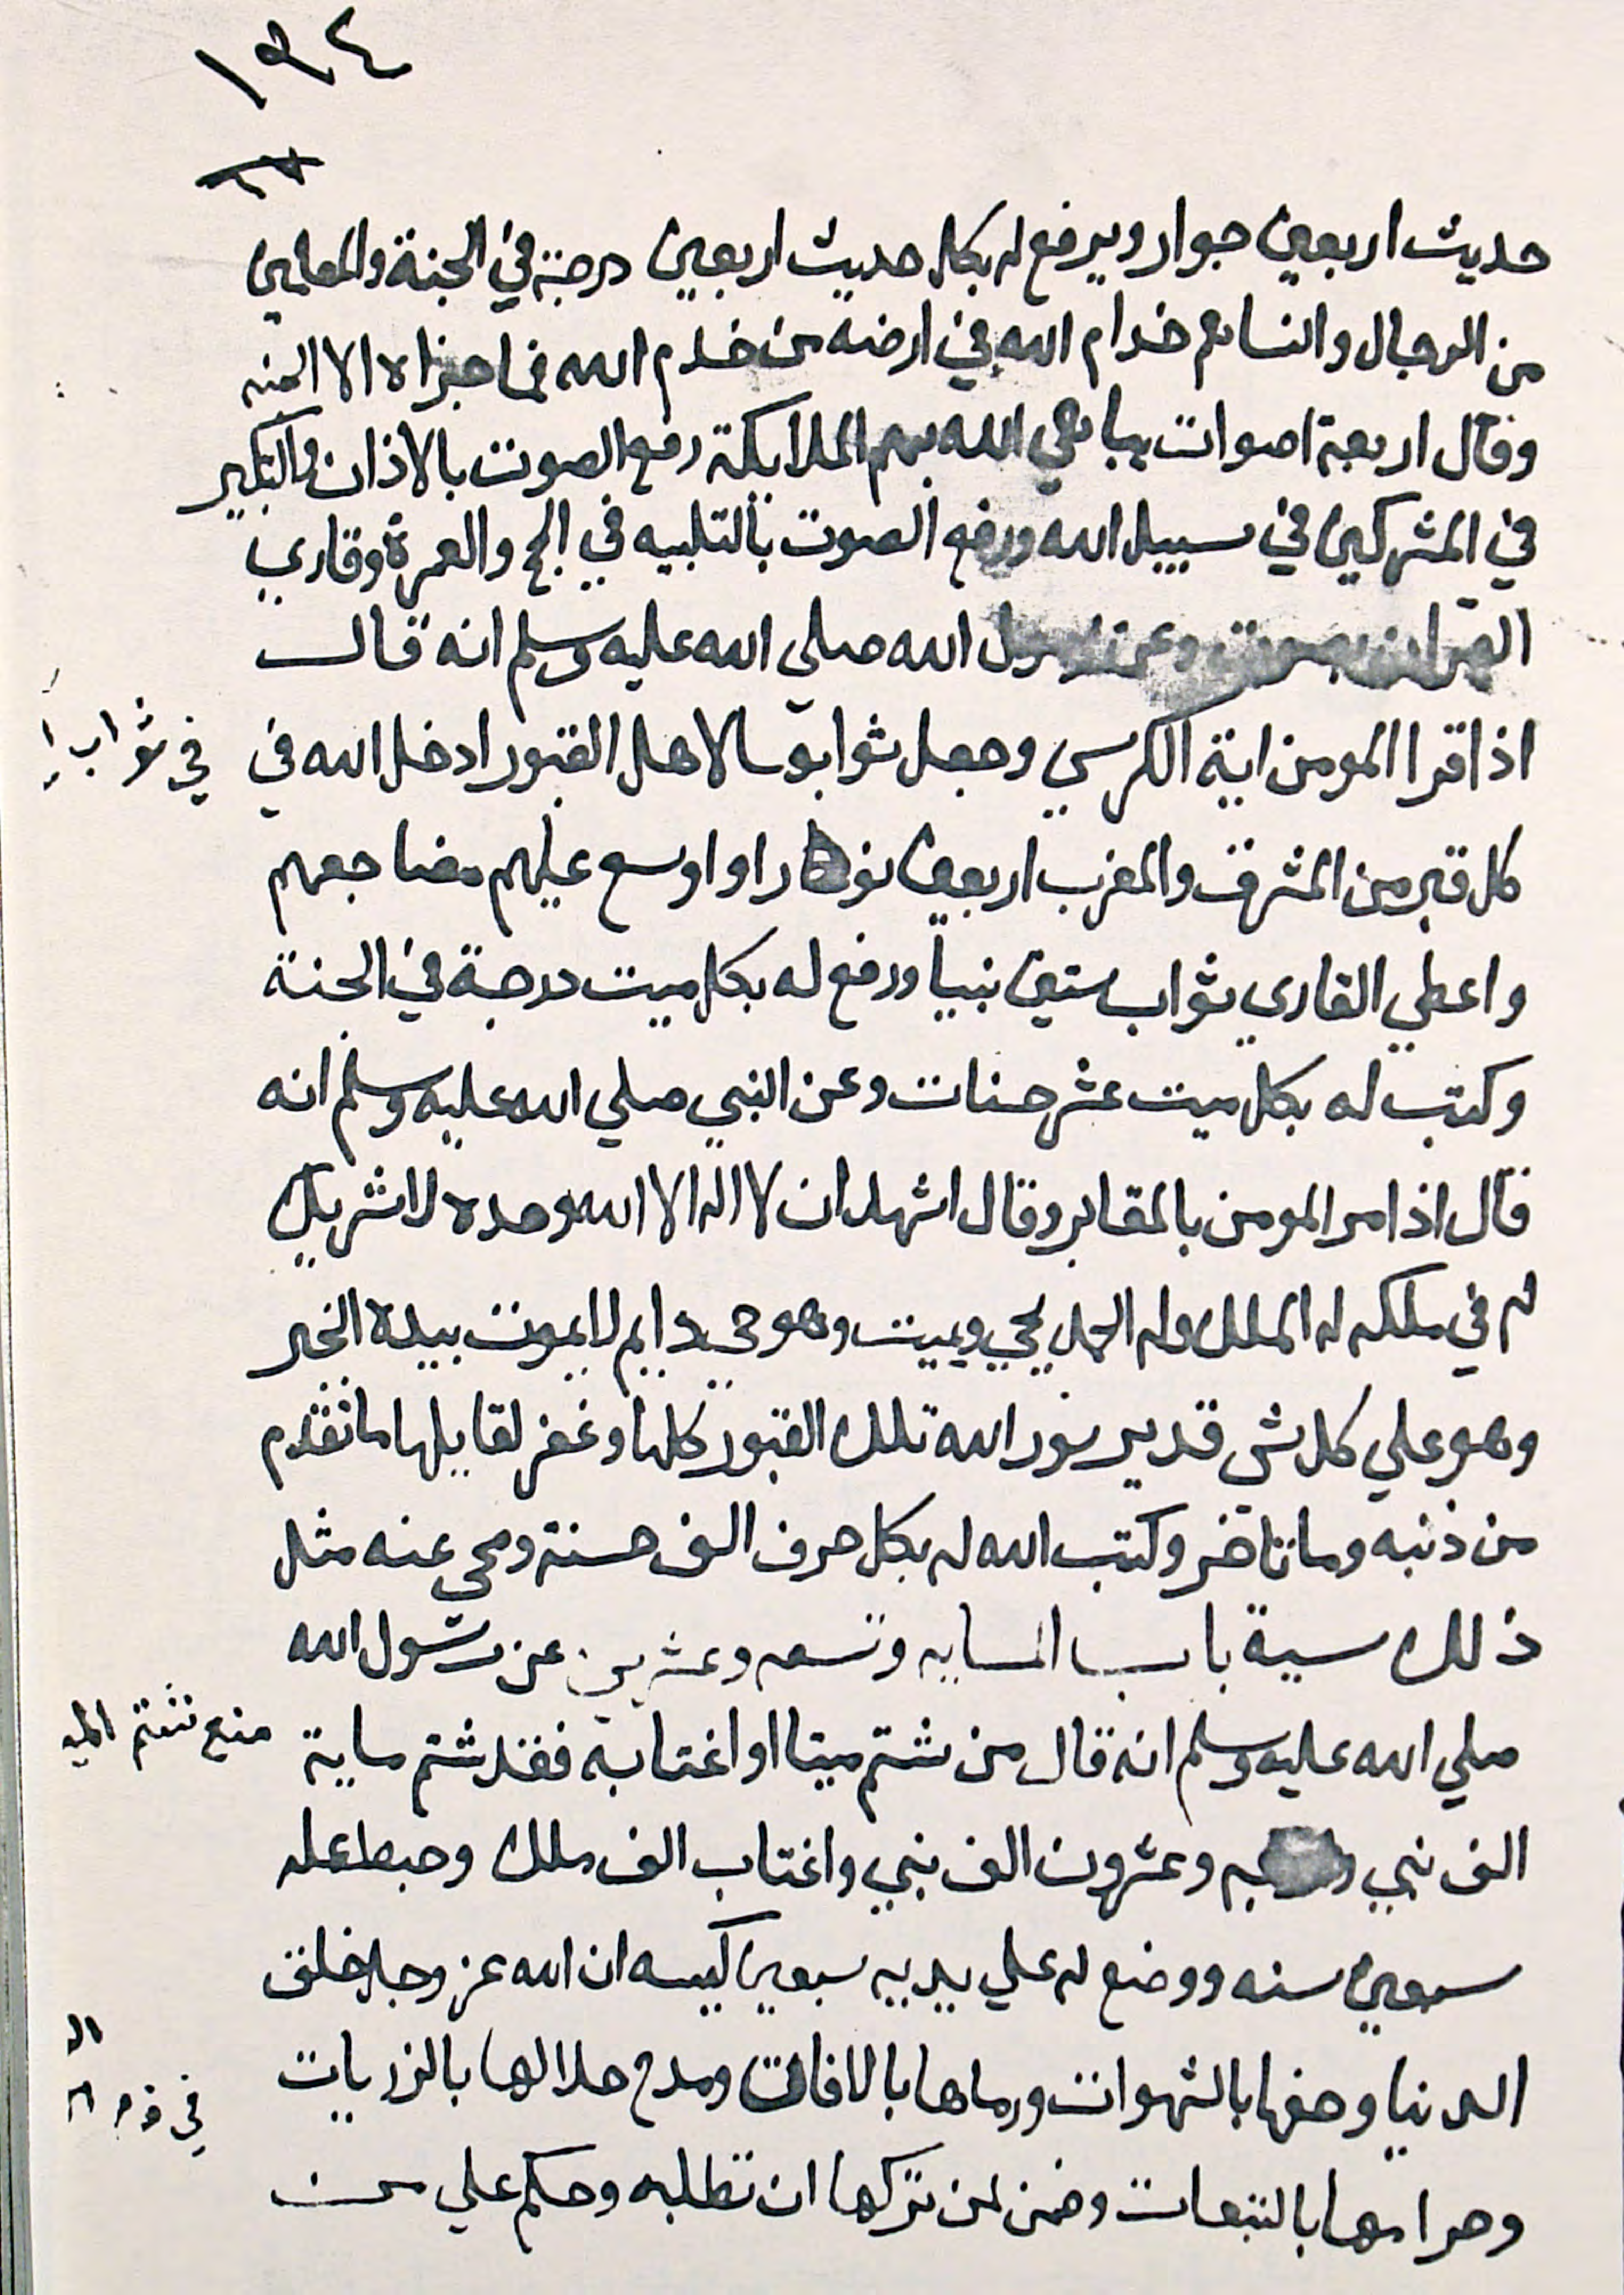 ١٩٤
حديث اربعين جوار ويرفع له بكل حديث اربعين درجة في الجنة والمعلمين
من الرجال والنسا هم خدام الله في ارضه من خدم الله فما جزاه الا الجنه
وقال اربعة اصوات يباهي الله بهم الملايكة رفع الصوت بالاذان والتكبير
في المشركين في سبيل الله ورفع الصوت بالتلبيه في الحج والعمرة وقاري
القران بصوت وعن رسول الله صلي الله عليه وسلم انه قال
اذا قرا المومن اية الكرسي وجعل ثوابها لاهل القبور ادخل الله في
في ثواب
كل قبر من المشرق والمغرب اربعين نورا واوسع عليهم مضاجعهم
واعطي القاري ثواب ستين نبيا ورفع له بكل ميت درجة في الجنة
وكتب له بكل ميت عشر حسنات وعن النبي صلي الله عليه وسلم انه
قال اذا مر المومن بالمقابر وقال اشهد ان لا اله الا الله وحده لا شريك
له في ملكه له الملك وله الحمد يحيي ويميت وهو حي دايم لا يموت بيده الخير
وهو علي كل شي قدير نور الله تلك القبور كلها وغفر لقايلها ما تقدم
من ذنبه وما تاخر وكتب الله له بكل حرف الف حسنة ومحي عنه مثل
ذلك سية باب المايه وتسعه وعشرين عن رسول الله
صلي الله عليه وسلم انه قال من شتم ميتا او اغتابه فقد شتم ماية
منع شتم
الف نبي وعشرون الف نبي واغتاب الف ملك وحبط عمله
سبعين سنه ووضع له علي يديه سبعين كيسه ان الله عز وجل خلق
الدنيا وحفها بالشهوات ورماها بالافات ومدح حلالها بالزريات
في
وحرامها بالتبعات وضمن لمن تركها ان تطلبه وحكم علي من